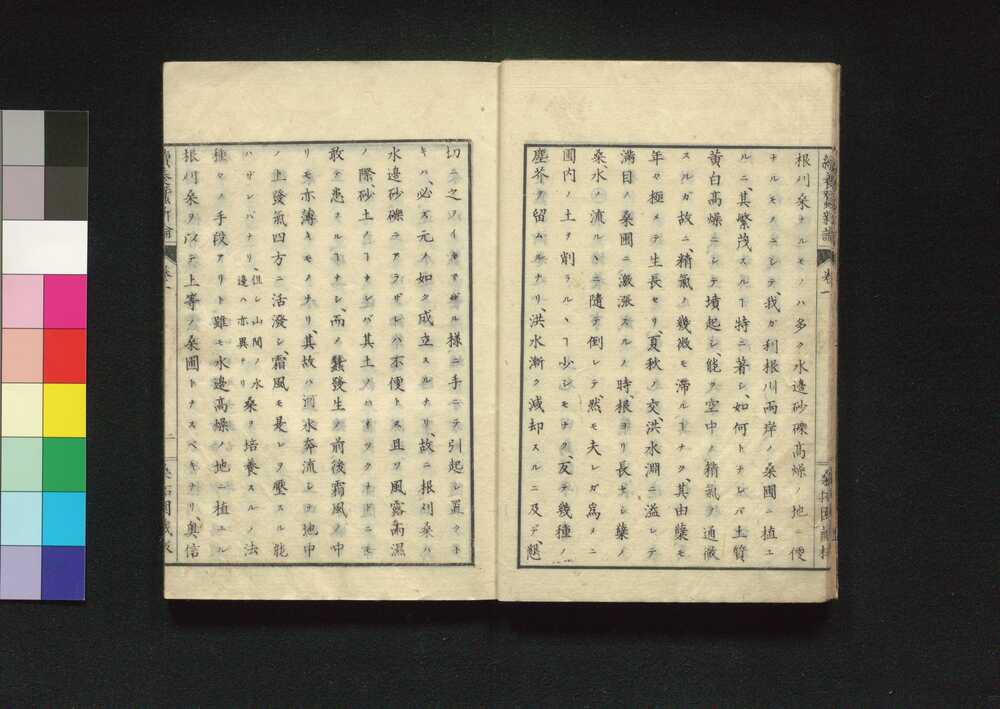 續養蠶新論
卷一
根刈桑ナルモノハ多ク水邉砂礫高燥ノ地ニ便
ナルモノニシテ、我ガ利根川兩岸ノ桑圃ニ植エ
ルニ、其繁茂スルヿ特ニ著シ、如何トナレバ土質
黄白高燥ニシテ墳起シ、能ク空中ノ精氣ヲ通徹
スルガ故ニ、精氣ノ幾微モ滞ルヿナク、其由蘖モ
年々極メテ生長セリ、夏秋ノ交、洪水淵ニ溢レテ
滿目ノ桑圃ニ激漲スルノ時、根ヨリ長ナレ蘖ノ
桑、水ノ流ルヽニ隨テ倒レテ、然モ夫レガ爲メニ
圃内ノ土ヲ削ラルヽヿ少シモナク、反テ幾種ノ
塵芥ヲ留ムルナリ、洪水漸ク減却スルニ及デ、懇
切ニ之ヲイタマザル様ニ手ニテ引起シ置クト
キハ、必ズ元ノ如ク成立スルナリ、故ニ根刈桑ハ
水邉砂礫ニアラザレバ不便トス且ツ風露滴濕
ノ際、砂土ノヿナレバ其土ノハネツクナドニモ
敢テ患ヘスルヿナシ、而ノ蠶發生ノ前後霜風ノ中
リモ亦薄キモノナリ、其故ハ河水奔流シテ地中
ノ上發氣四方ニ活潑シ、霜風モ是レヲ壓スル能
ハザレバナリ、但シ山間ノ水邉ハ亦異ナリ桑ヲ培養スルノ法
種々ノ手段アリト雖モ水邉高燥ノ地ニ植ユル
根刈桑ヲ以テ上等ノ桑圃トナスベキナリ、奥信
卷一
二